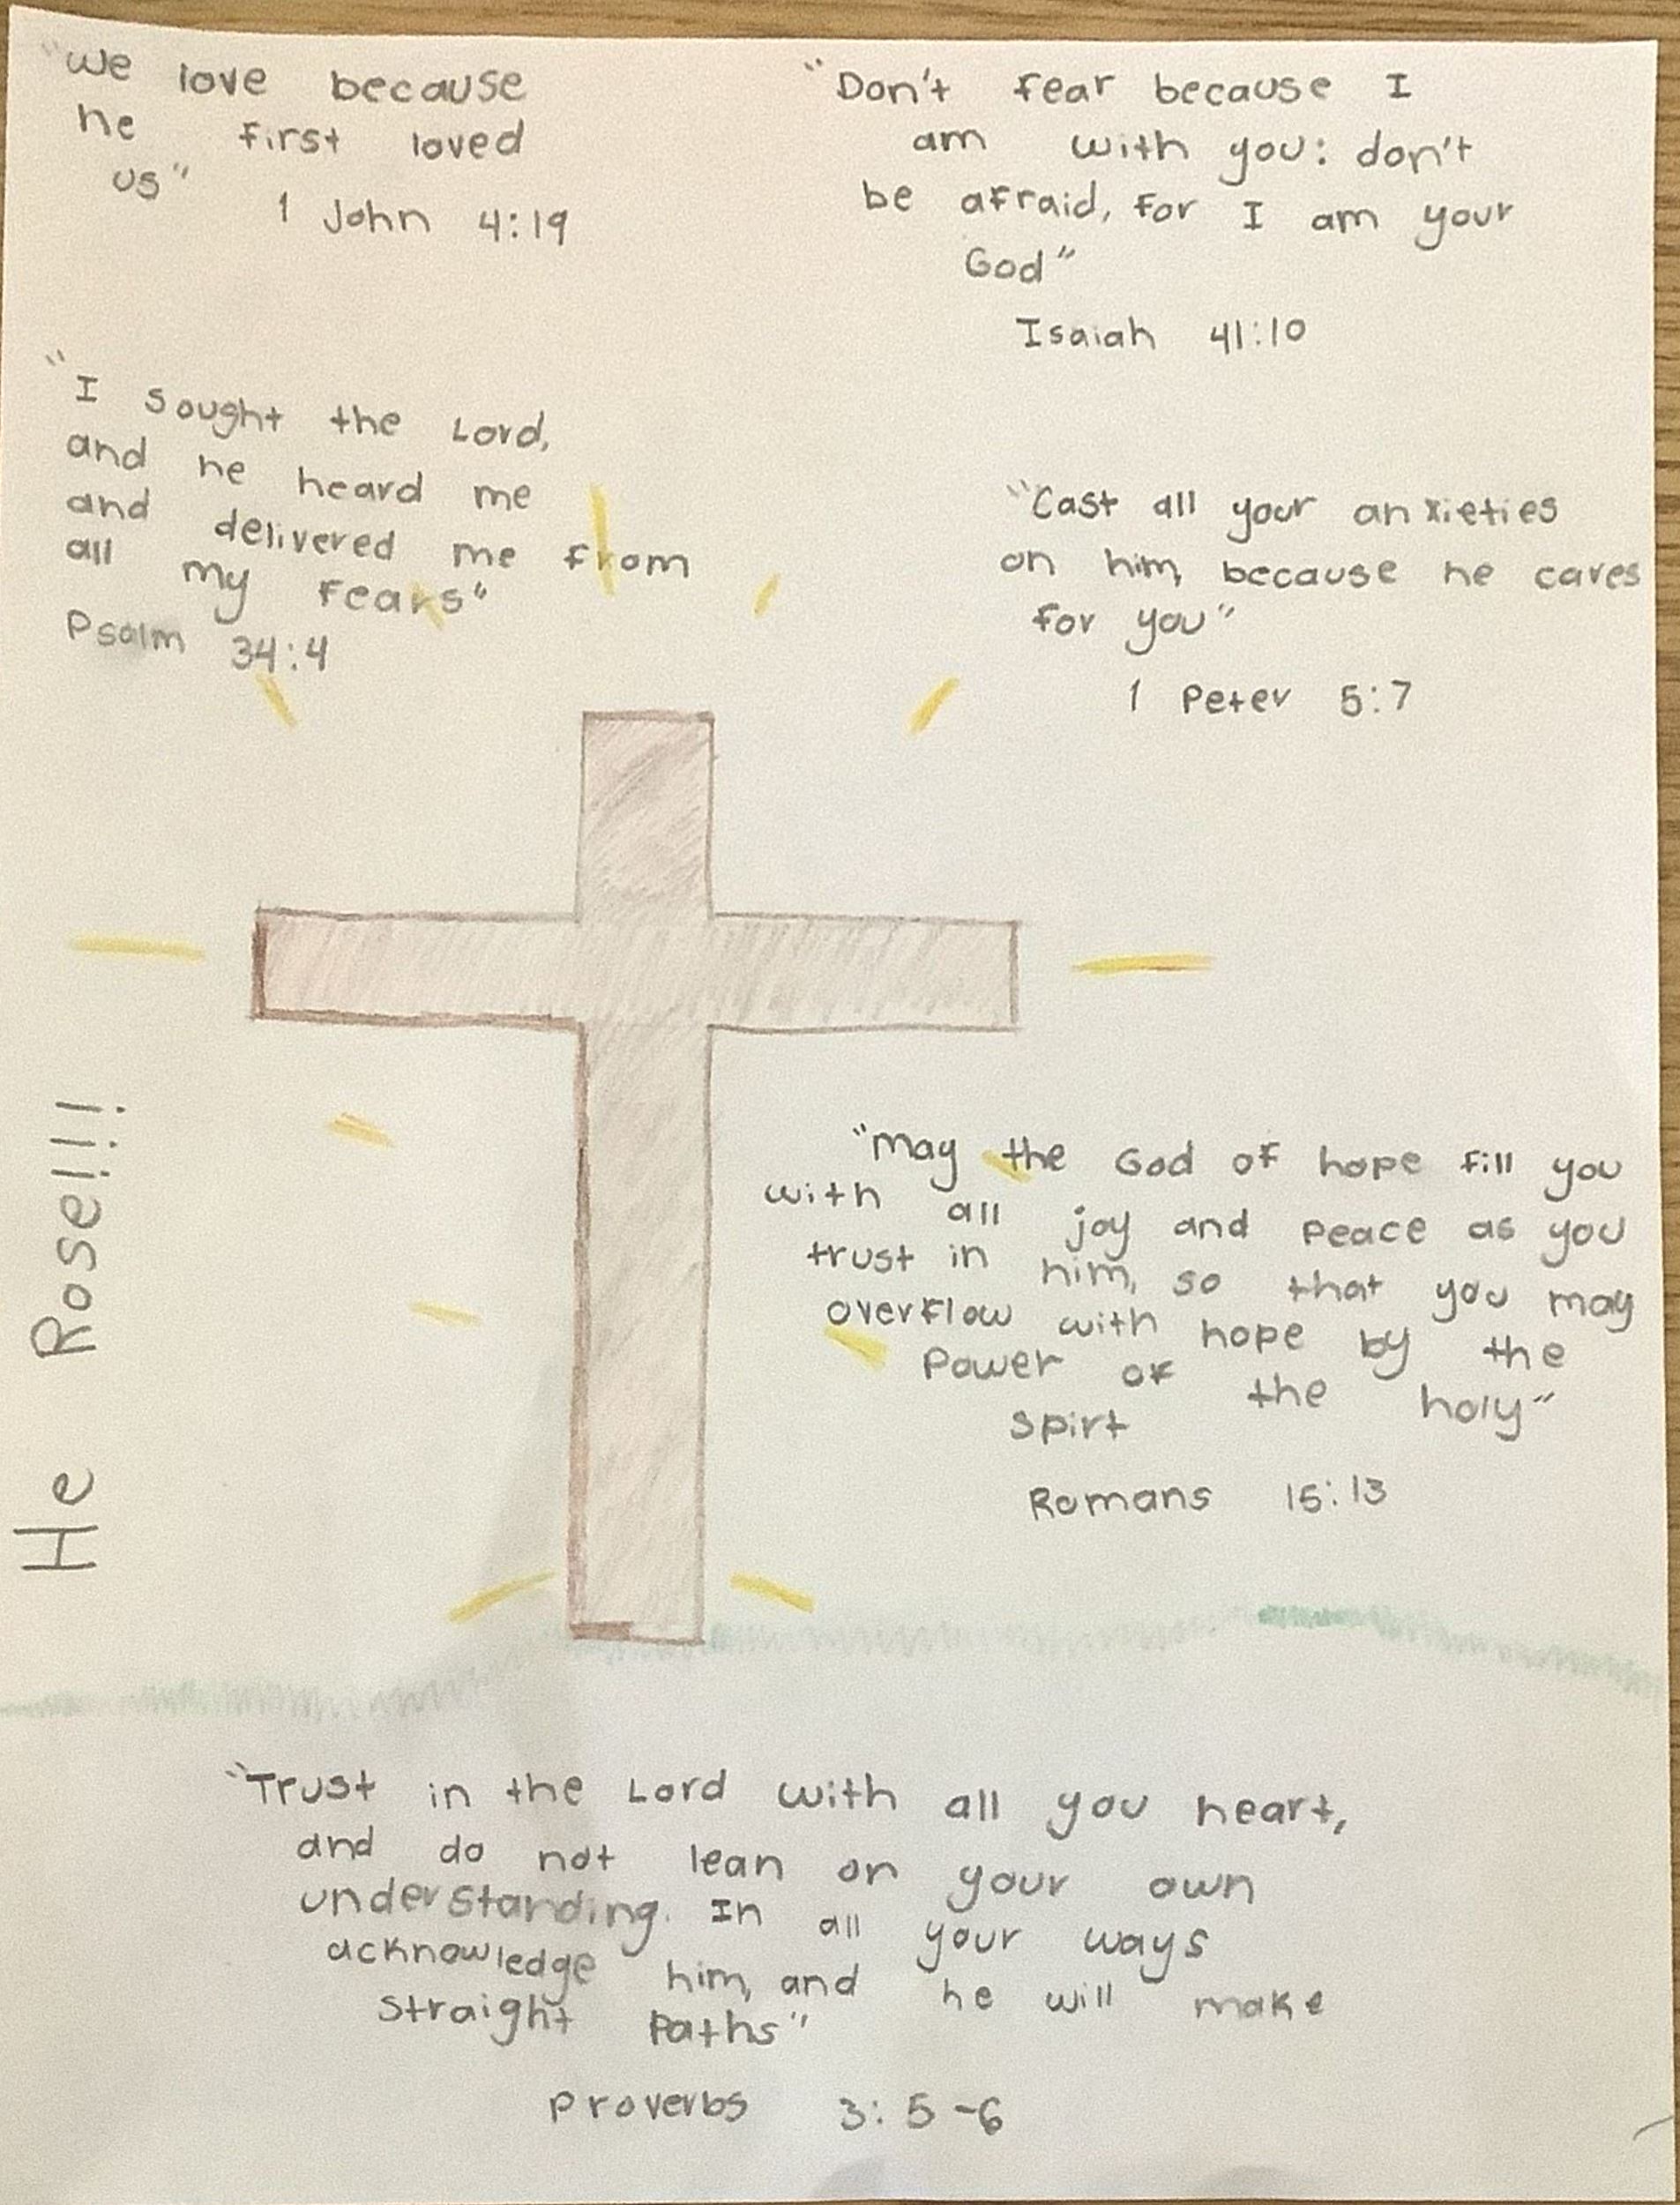 "We love because
he first loved
us"
1 John 4:19
"Don't fear because I
am with you: don't
be afraid, for I am your
God"
Isaiah 41:10
"I sought the Lord,
and he heard me
and delivered me from
all my fears"
Psalm 34:4
"Cast all your anxieties
on him, because he cares
for you"
1 Peter 5:7
He Rose!!!
"May the God of hope fill you
with all joy and peace as you
trust in him, so that you may
overflow with hope by the
power of the holy"
spirt
Romans 15:13
"Trust in the Lord with all you heart,
and do not lean on your own
understanding. In all your ways
acknowledge him, and he will make
straight paths"
Proverbs 3:5-6